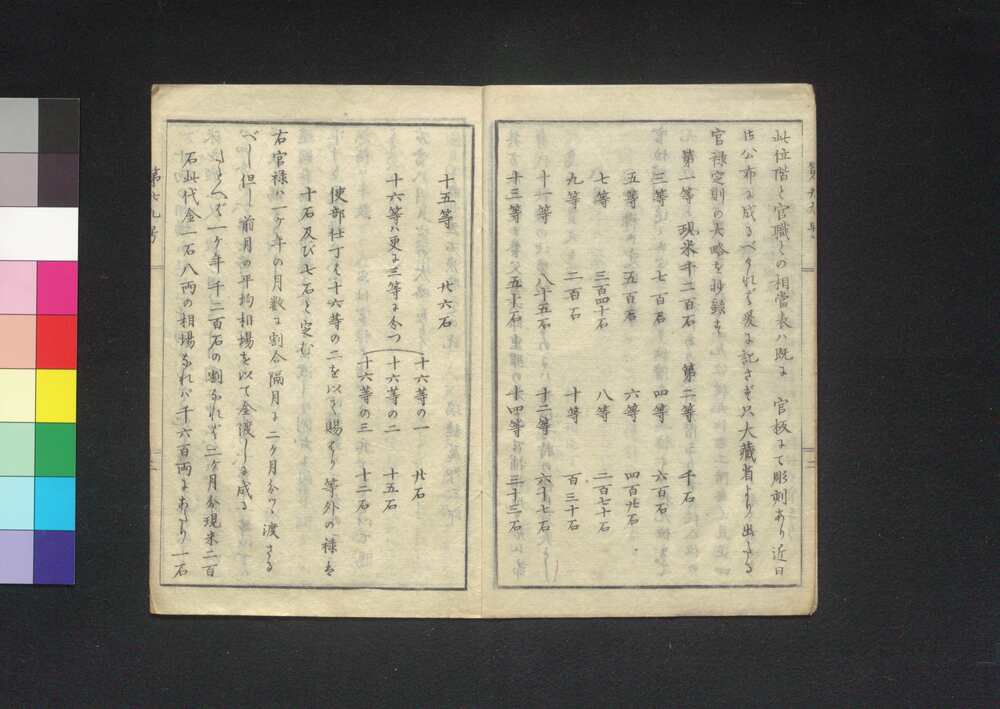 此位階と官職との相當表ハ既に 官板にて彫刻あり近日
御公布に成るべけれバ爰に記さず只大藏省より出たる
官禄定則の大略を抄録す
第一等 現米千二百石 第二等 千石
三等 七百石 四等 六百石
五等 五百石 六等 四百廿石
七等 三百四十石 八等 二百七十石
九等 二百石 十等 百三十石
十一等 八十五石 十二等 六十七石
十三等 五十石 十四等 三十三石
十五等 廿六石
十六等の一 廿石
十六等ハ更に三等に分つ 十六等の二 十五石
十六等の三 十二石
使部仕丁も十六等の二を以て賜はり等外の禄は
十石及び七石と定む
右官禄ハ一ケ年の月数に割合隔月に二ケ月分つゝ渡さる
べし但し前月の平均相場を以て金渡しに成る
たとへバ一ケ年千二百石の割なれバ二ケ月分現米二百
石此代金一石八両の相場なれバ千六百両にあたり一石
第七九号
三